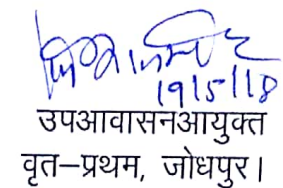 19/5/18
उपआवासनआयुक्त
वृत–प्रथम, जोधपुर।